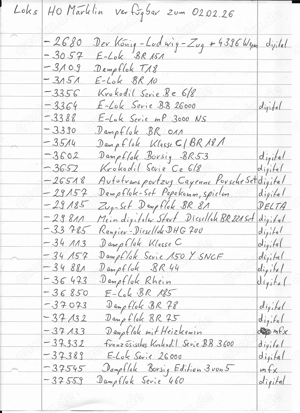 Loks H0 Märklin verfügbar zum 02.02.26
- 2680 Der König-Ludwig-Zug + 4396 Wgm digital
- 3057 E-Lok BR 151
- 3109 Dampflok T18
- 3151 E-Lok BR 10
- 3356 Krokodil Serie Be 6/8
- 3364 E-Lok Serie BB 26000 digital
- 3388 E-Lok Serie mP 3000 NS
- 3390 Dampflok BR 011
- 3514 Dampflok Klasse C/BR 18.1
- 3602 Dampflok Borsig BR53 digital
- 3652 Krokodil Serie Ce 6/8 digital
- 26518 Autotransportzug Cayenne Porsche Set digital
- 29157 Dampflok-Set digital
- 29185 Zug-Set Dampflok BR 81 DELTA
- 29811 Mein digitaler Start Diesellok Set digital
- 33785 Rangier-Diesellok DHG 700 digital
- 34113 Dampflok Klasse C digital
- 34157 Dampflok Serie 150 Y SNCF digital
- 34881 Dampflok BR 44 digital
- 36473 Dampflok Rhein digital
- 36850 E-Lok BR 185
- 37073 Dampflok BR 78 digital
- 37132 Dampflok BR 75 digital
- 37133 Dampflok mit Heizkamin mfx
- 37332 französisches Krokodil Serie BB 3600 digital
- 37389 E-Lok Serie 26000 digital
- 37545 Dampflok Borsig Edition 3 von 5 mfx
- 37559 Dampflok Serie 460 digital